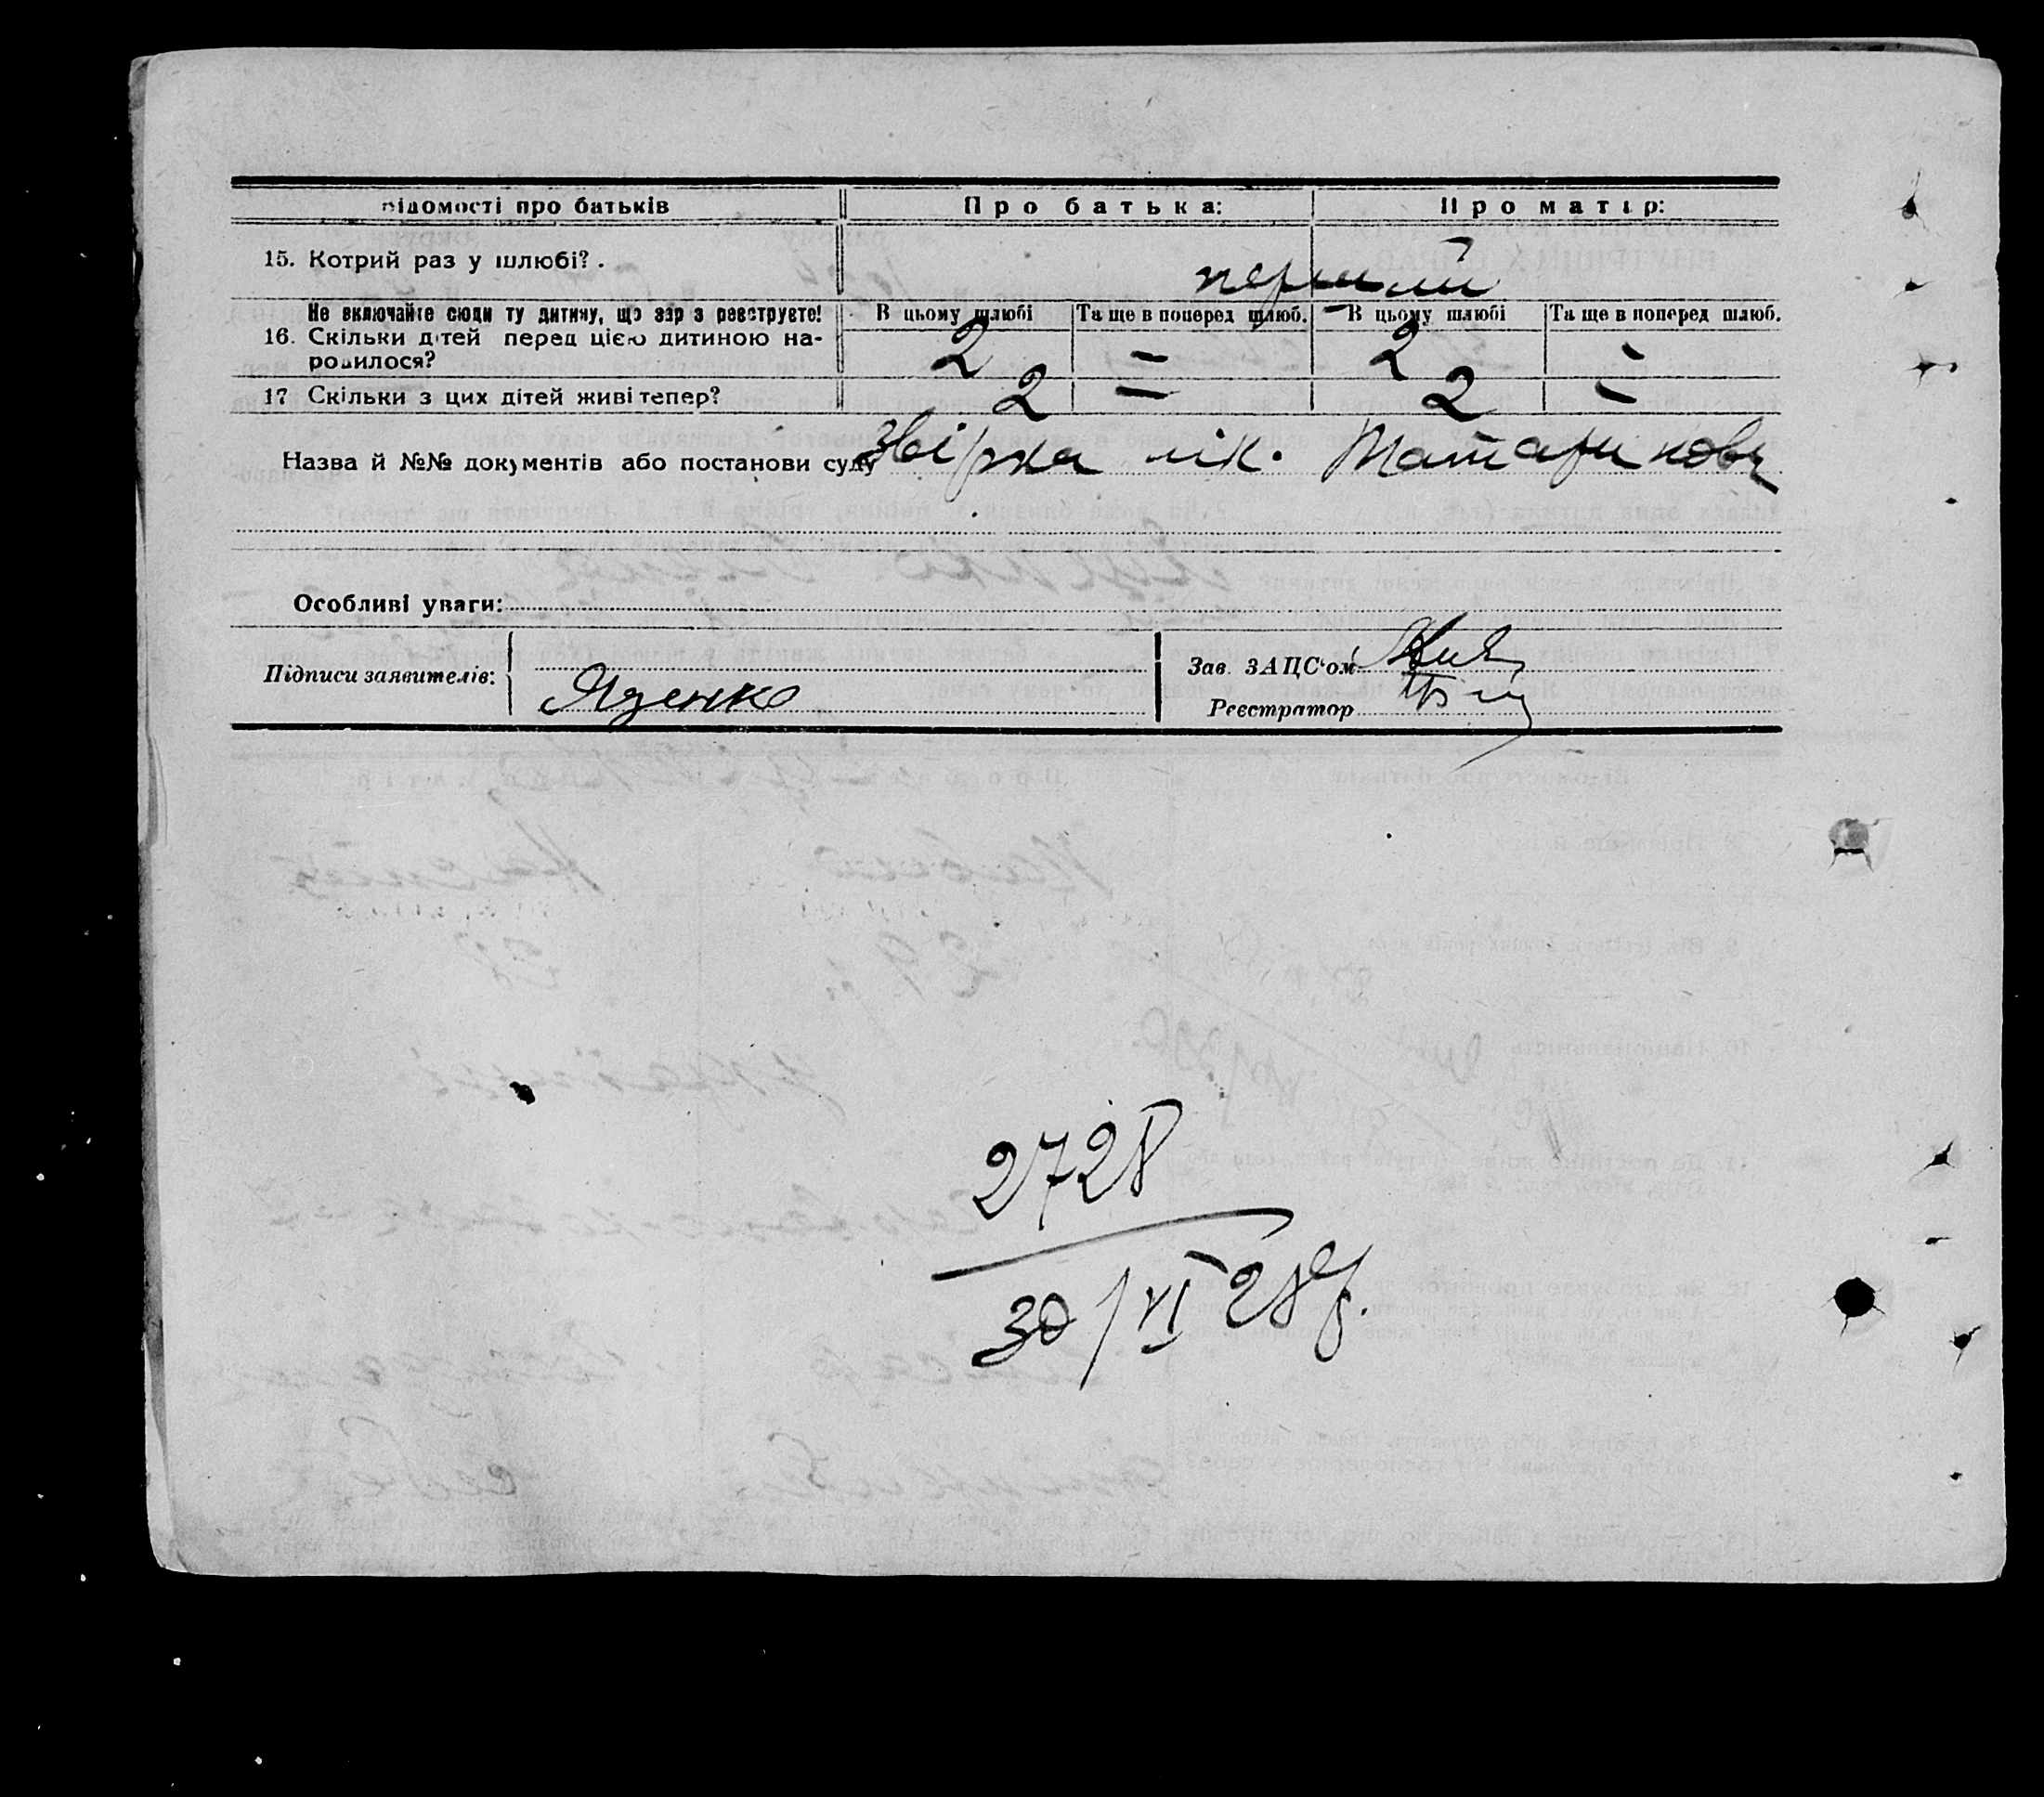 Відомості про батьків Про батька: Про матір:
15. Котрий раз у шлюбі? . перший
Не включайте сюди ту дитину, що зар з реєструєте! В цьому шлюбі Та ще в поперед шлюб. В цьому шлюбі Та ще в поперед шлюб.
16. Скільки дітей перед цією дитиною на-
родилося? 2 – 2 –
17 Скільки з цих дітей живі тепер? 2 – 2 –
Назва й №№ документів або постанови суду лік.
Особливі уваги:
Підписи заявителів: Яценко
Зав. ЗАЦС'ом
Реєстратор
2728
30/VI 28 р.